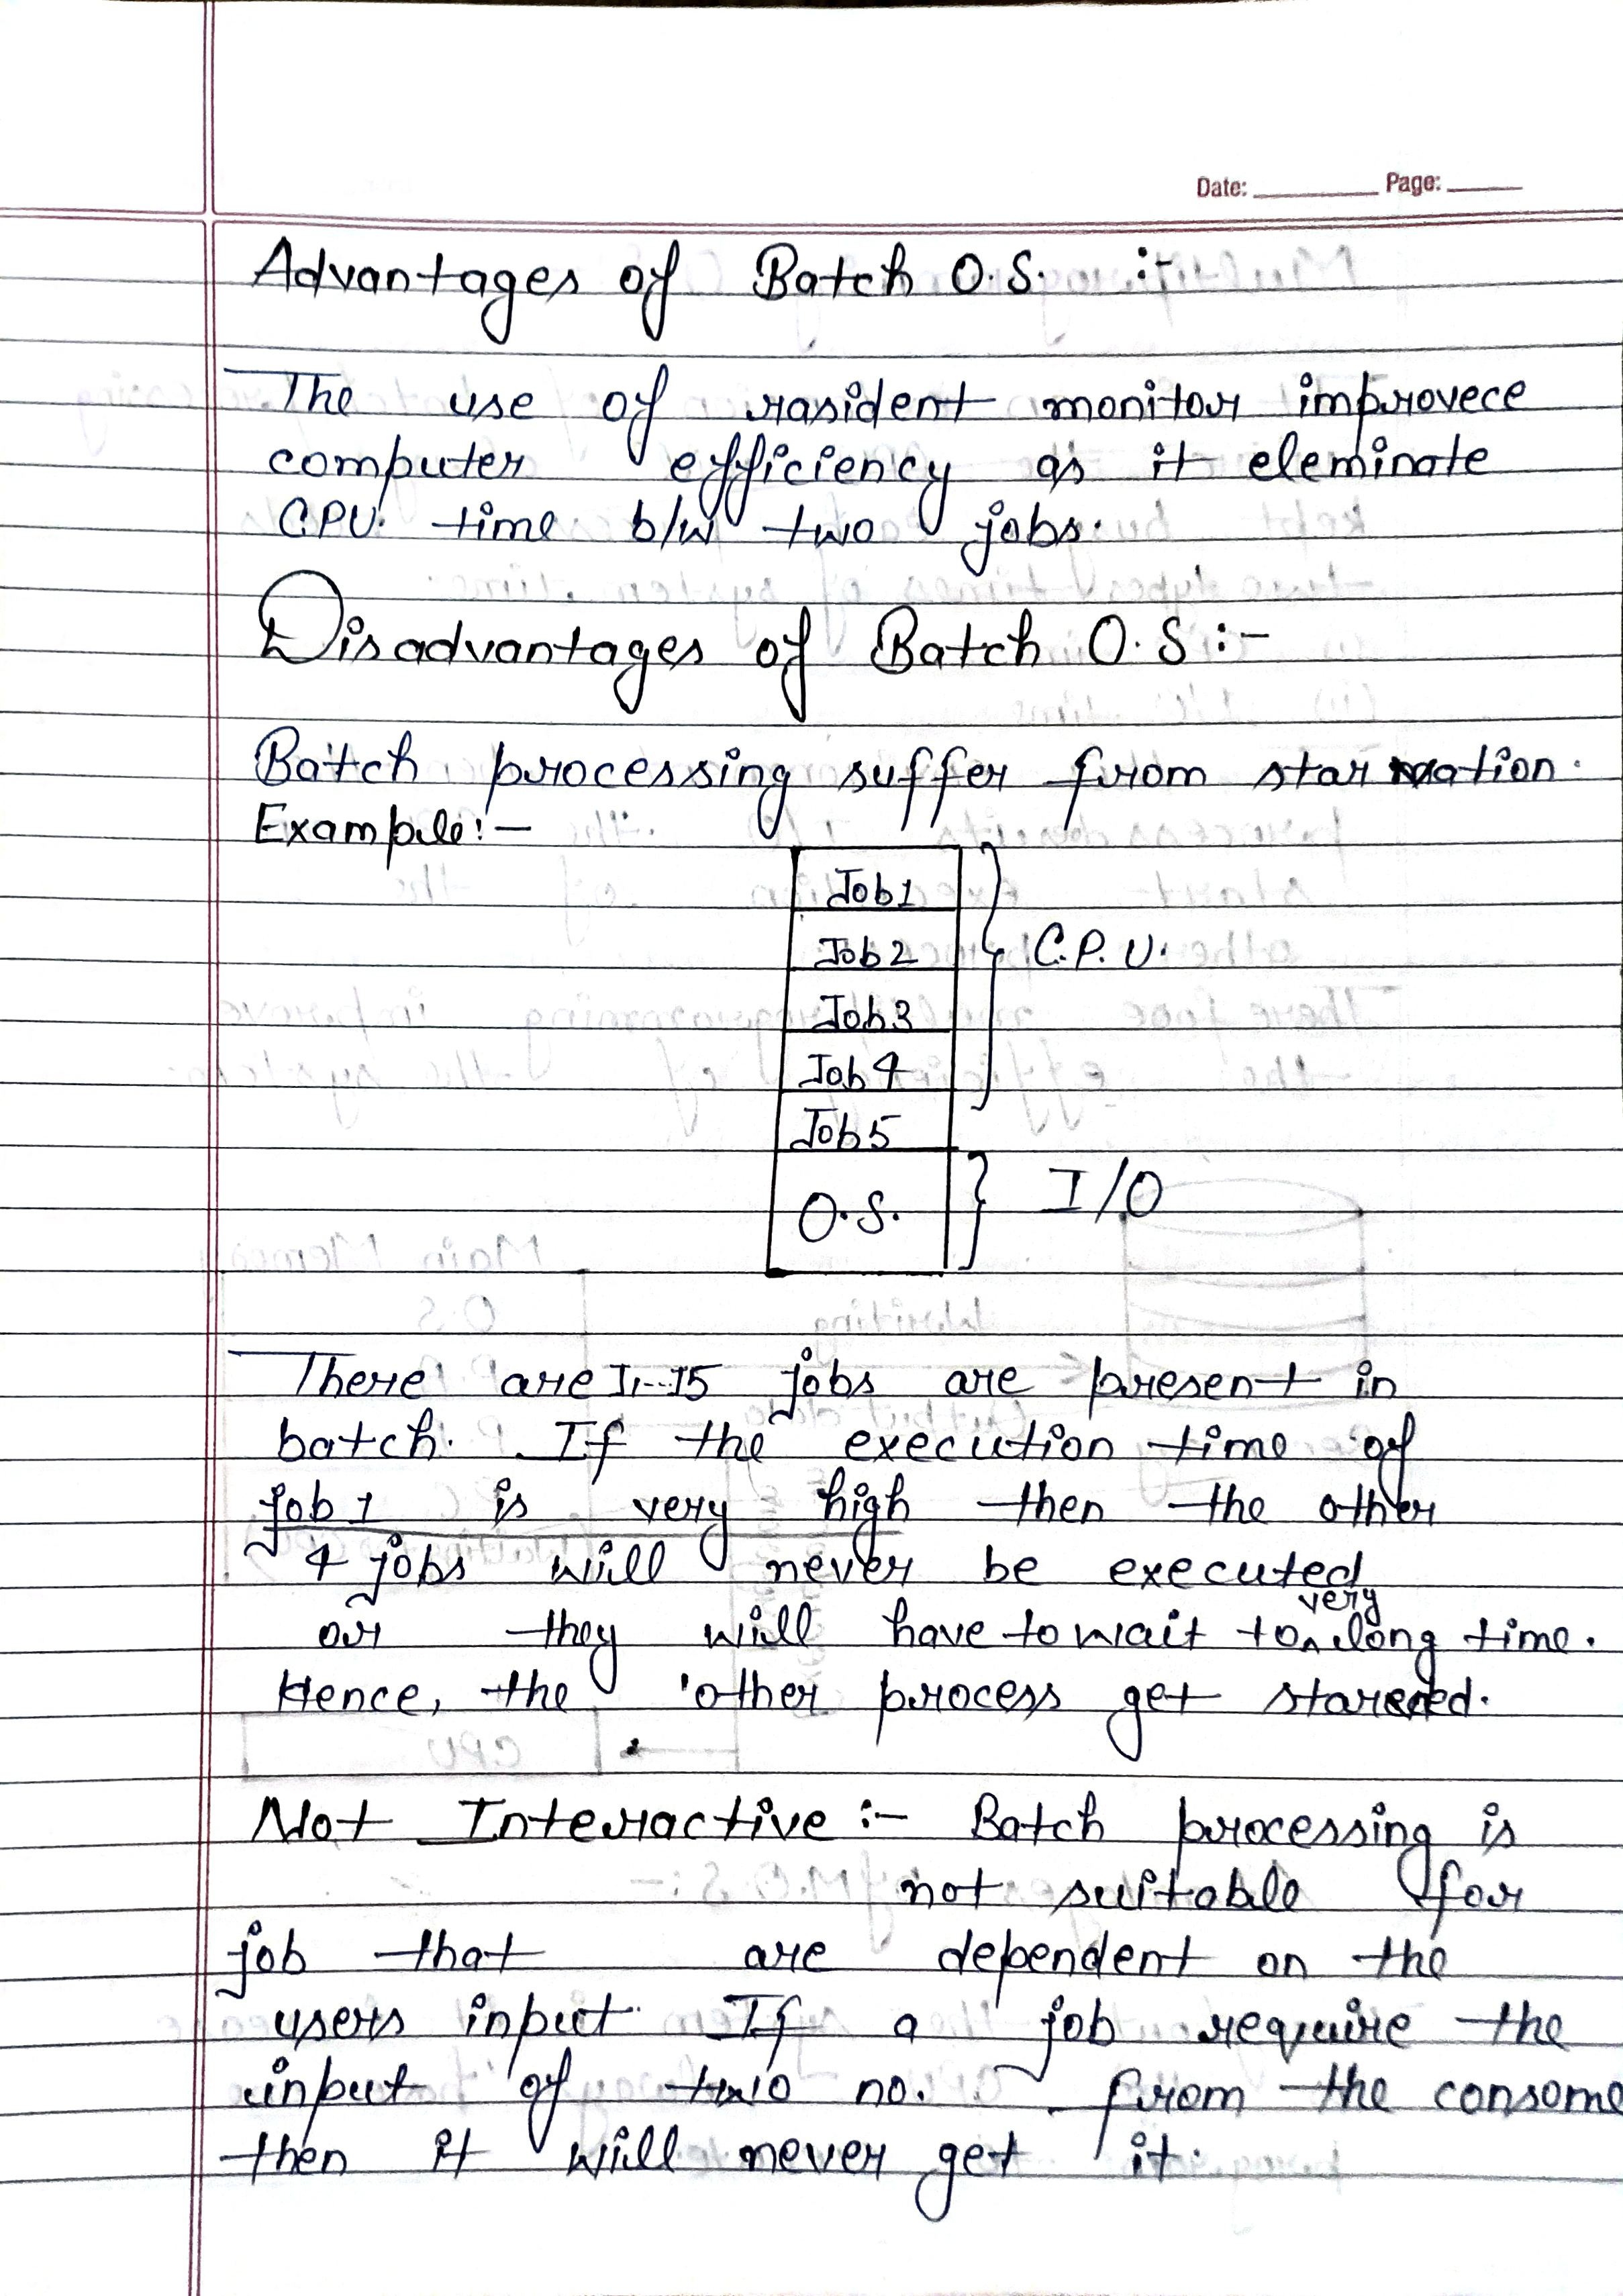 Date: Page:
Advantages of Batch O.S. :-
The use of rasident monitor improvece
computer efficiency as it eleminate
C.P.U. time b/w two jobs.
Disadvantages of Batch O.S :-
Batch processing suffer from starvation.
Example:-
Job1
Job2
Job3
Job4
Job5
O.S.
C.P.U.
I/O
There are J1--J5 jobs are present in
batch. If the execution time of
job 1 is very high then the other
4 jobs will never be executed
or they will have to wait to very long time.
Hence, the other process get starved.
Not Interactive :- Batch processing is
not suitable for
job that are dependent on the
users input. If a job require the
input of two no. from the consome
then it will never get it.